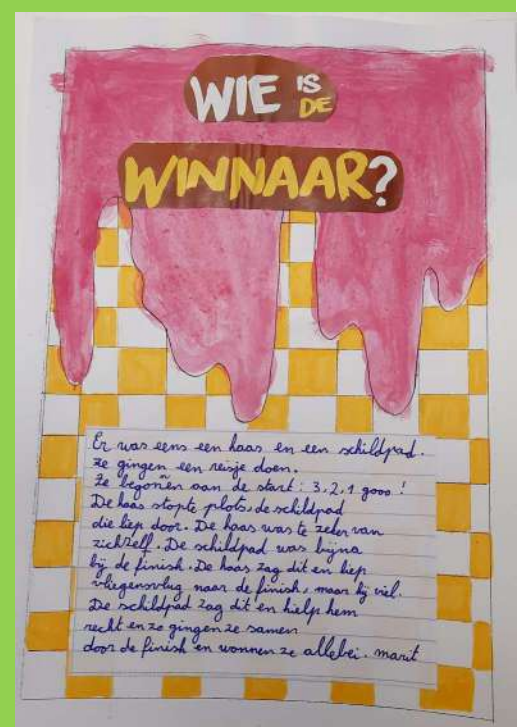 WIE IS
DE
WINNAAR?
Er was eens een haas en een schildpad.
Ze gingen een reisje doen.
Ze begonnen aan de start: 3, 2, 1 gooo!
De haas stopte plots, de schildpad
die liep door. De haas was te zeker van
zichzelf. De schildpad was bijna
bij de finish. De haas zag dit en liep
vliegensvlug naar de finish, maar hij viel.
De schildpad zag dit en hielp hem
recht en zo gingen ze samen
door de finish en wonnen ze allebei. marit